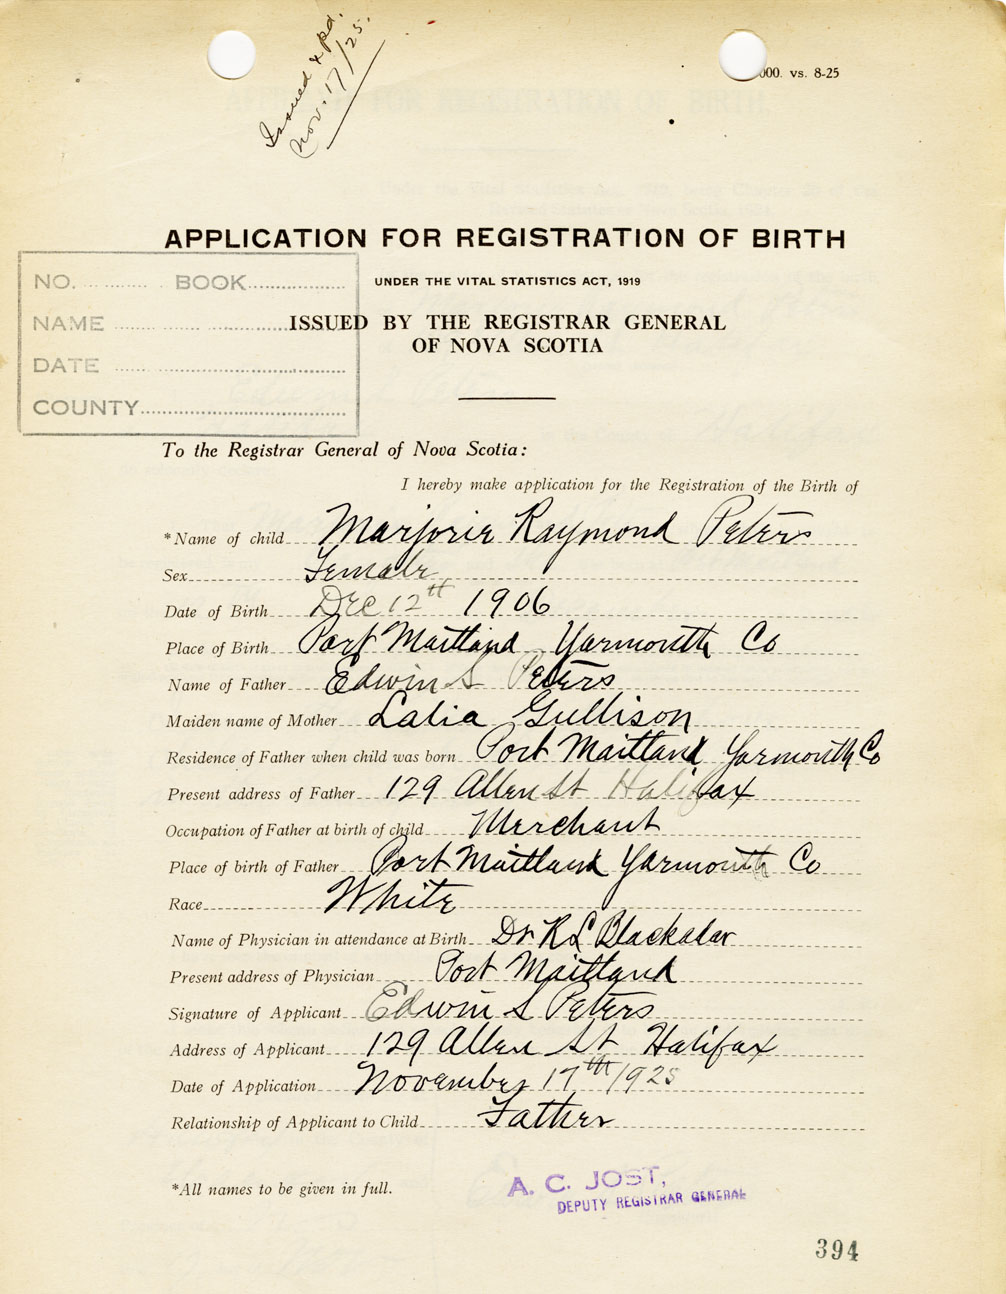 Issued & pd.
Nov. 17/25.
000. vs. 8-25
APPLICATION FOR REGISTRATION OF BIRTH
UNDER THE VITAL STATISTICS ACT, 1919
ISSUED BY THE REGISTRAR GENERAL
OF NOVA SCOTIA
NO. BOOK
NAME
DATE
COUNTY
To the Registrar General of Nova Scotia:
I hereby make application for the Registration of the Birth of
*Name of child Marjorie Raymond Peters
Sex Female
Date of Birth Dec 12th 1906
Place of Birth Port Maitland Yarmouth Co
Name of Father Edwin S Peters
Maiden name of Mother Lalia Gullison
Residence of Father when child was born Port Maitland Yarmouth Co
Present address of Father 129 Allen St Halifax
Occupation of Father at birth of child Merchant
Place of birth of Father Port Maitland Yarmouth Co
Race White
Name of Physician in attendance at Birth Dr R L Blackadar
Present address of Physician Port Maitland
Signature of Applicant Edwin S Peters
Address of Applicant 129 Allen St Halifax
Date of Application November 17th 1925
Relationship of Applicant to Child Father
*All names to be given in full.
A. C. JOST,
DEPUTY REGISTRAR GENERAL
394